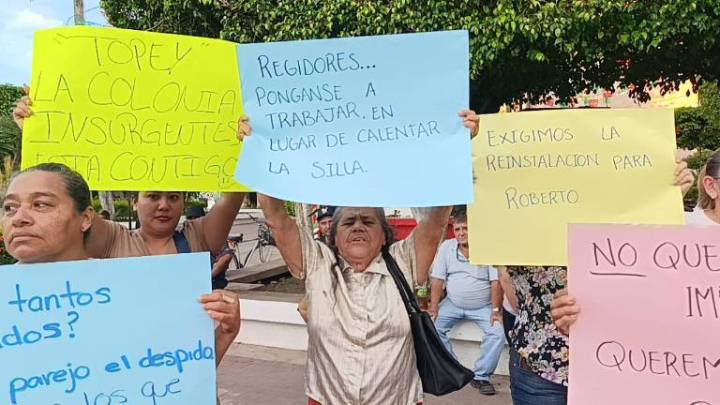 "TOPEY"
LA COLONIA
INSURGENTES
ESTA CONTIGO
REGIDORES...
PONGANSE A
TRABAJAR. EN
LUGAR DE CALENTAR
LA SILLA.
EXIGIMOS LA
REINSTALACION PARA
ROBERTO
tantos
dos?
parejo el despido
los que
NO QUE
IM
QUEREM